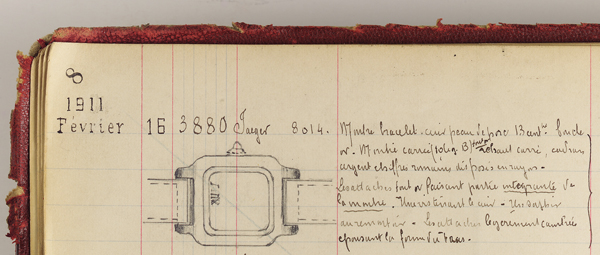 8
1911
Février 16 3880 Jaeger 8014.
Montre bracelet cuir peau de porc 13 cent. boucle
or. Montre carrée rehaut carré, cadran
argent chiffres romains disposés en rayons -
Les attaches sont or faisant partie intégrante de
la montre. Une vis tenant le cuir - Un saphir
au remontoir - Les attaches légèrement cambrées
épousant la forme du bras.
XII